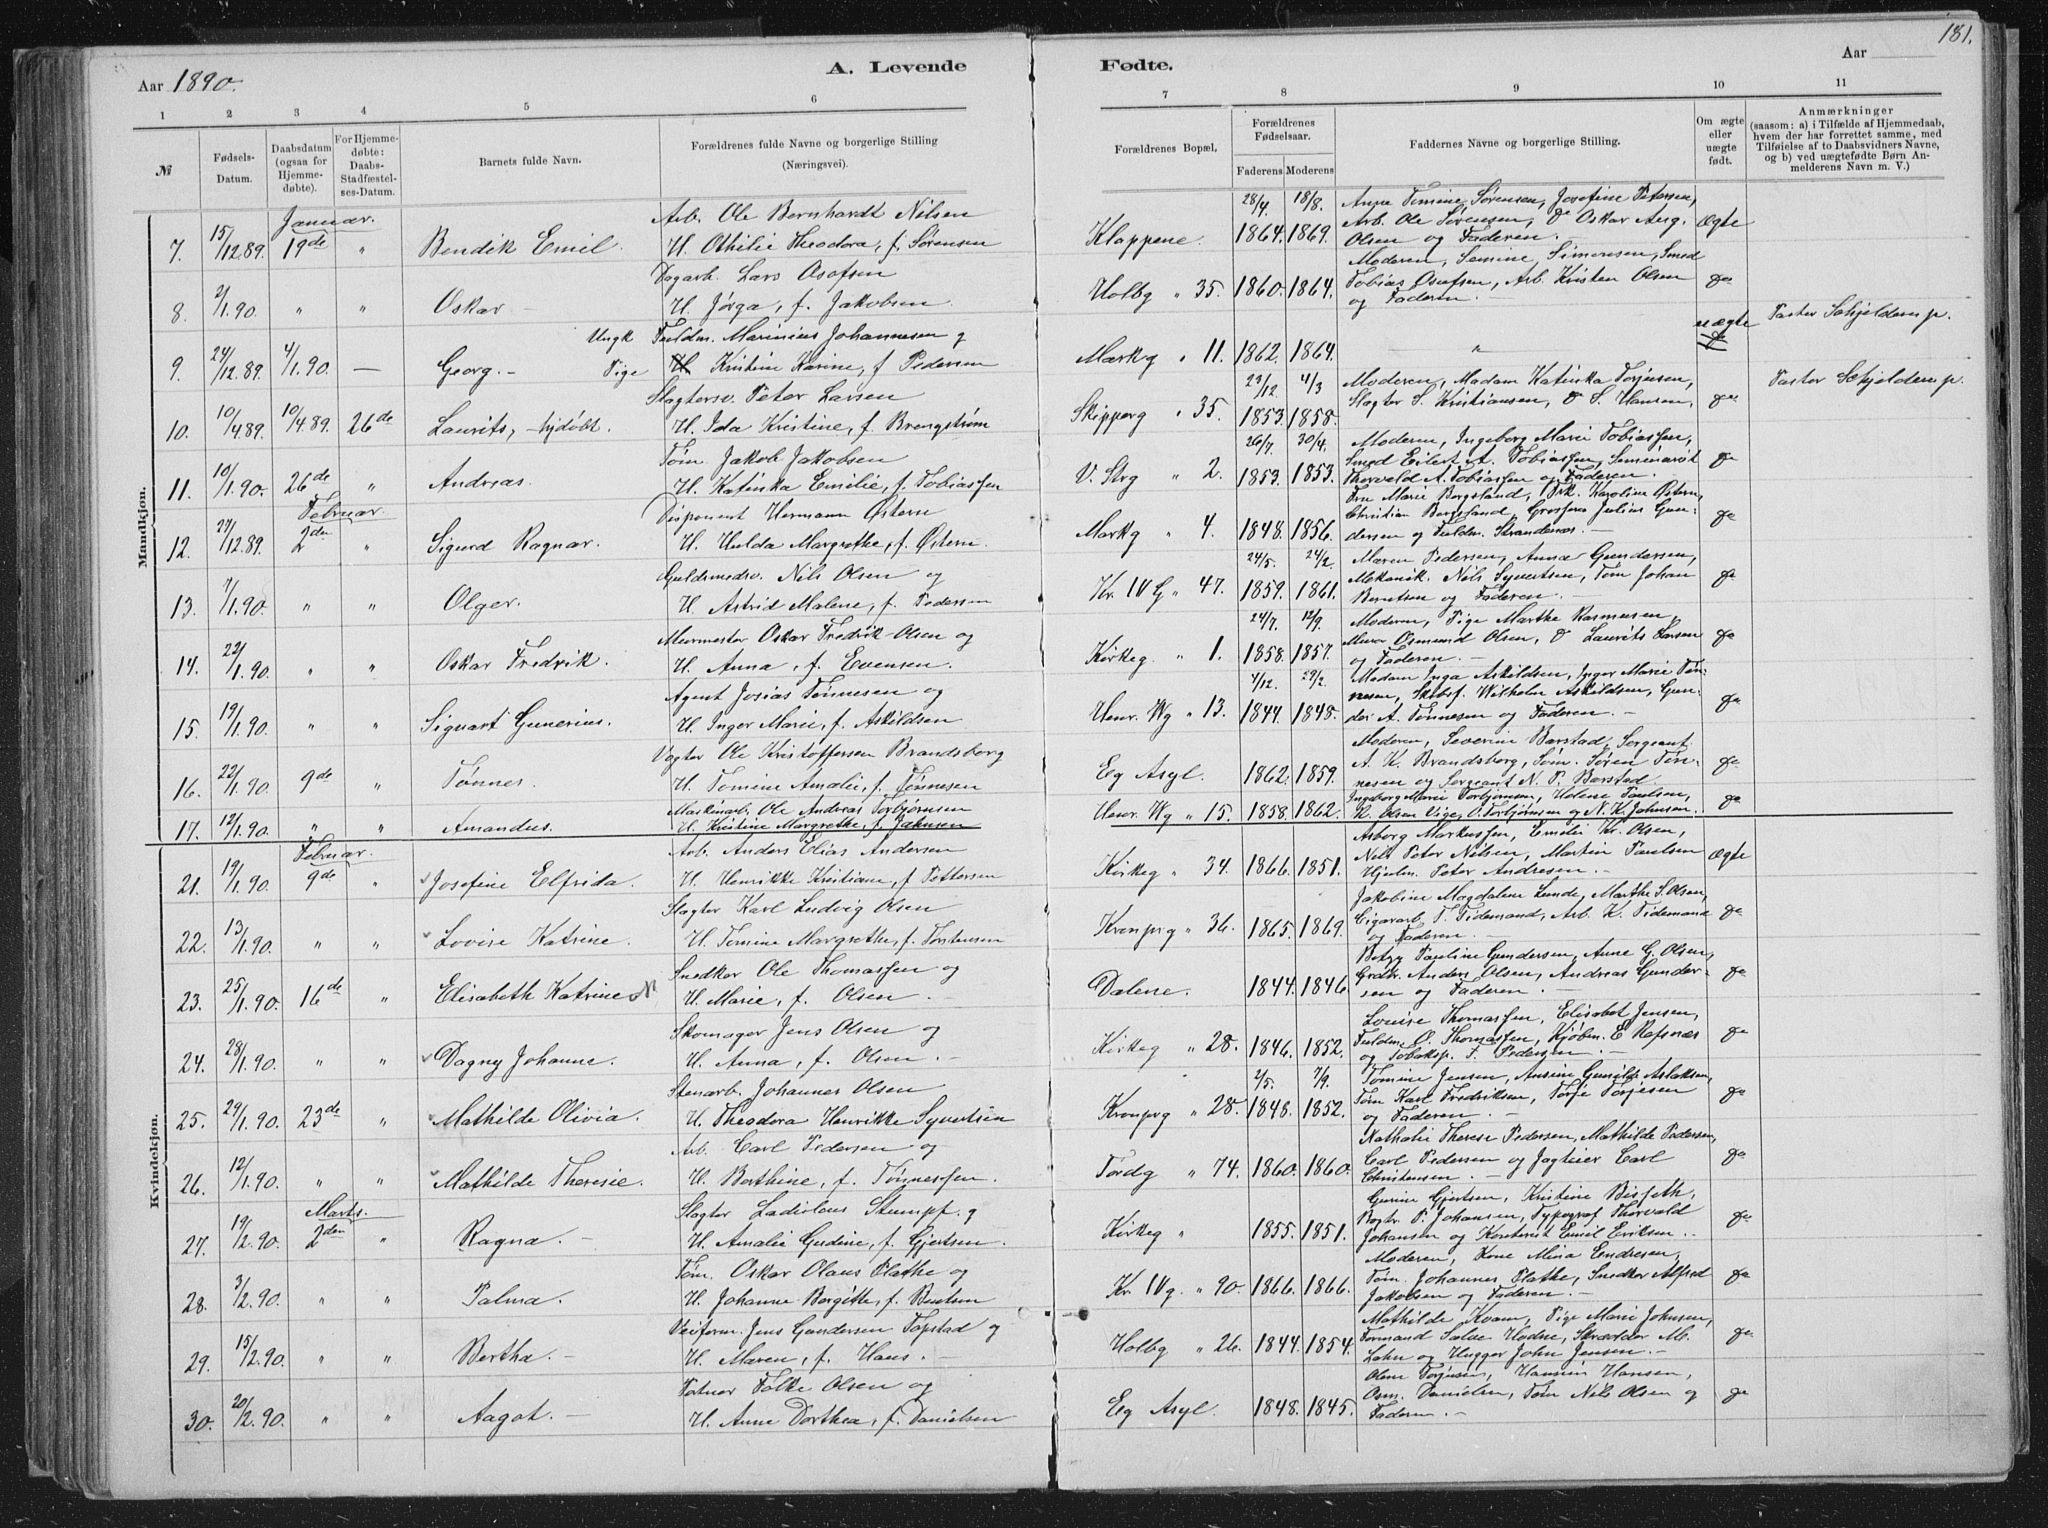 181.
Aar 1890.
A. Levende Fødte.
Aar
1 2 3 4 5 6 7 8 9 10 11
№
Fødsels-Datum.
Daabsdatum (ogsaa for Hjemmedøbte).
For Hjemmedøbte: Daabs-Stadfæstelses-Datum.
Barnets fulde Navn.
Forældrenes fulde Navne og borgerlige Stilling (Næringsvei).
Forældrenes Bopæl.
Forældrenes Fødselsaar.
Faderens Moderens
Faddernes Navne og borgerlige Stilling.
Om ægte eller uægte født.
Anmærkninger
(saasom: a) i Tilfælde af Hjemmedaab, hvem der har forrettet samme, med Tilføielse af to Daabsvidners Navne, og b) ved uægtefødte Børn Anmelderens Navn m. V.)
Mandkjøn.
Januar.
7. 15/12.89. 19de " Bendik Emil. Arb. Ole Bernhardt Nilsen H. Othilie Theodora, f. Sørensen Kloppene. 28/4. 1864. 18/8. 1869. Anne Tomine Sørensen, Josefine Petersen, Arb. Ole Sørensen, do Oskar Aug. Olsen og Faderen. — ægte
8. 2/1.90. " " Oskar — Dagarb. Lars Osofsen H. Jørga, f. Jakobsen Holbg " 35. 1860. 1864. Moderen, Semine Simonsen, Smed Tobias Osufsen, Arb. Kristen Olsen og Faderen. do
9. 24/12.89. 4/1.90. — Georg. — Ungk Fuldm. Marinius Johannesen og Pige H. Kristine Karine, f. Pedersen Markg " 11. 1862. 1864. " uægte do Pastor Schjelderup.
10. 10/4.89. 10/4.89. 26de Laurits, — hjdøbt. Slagtersv. Peter Larsen H. Ida Kristine, f. Brengstrøm Skipperg " 35. 23/12 1853. 4/3 1858. Moderen, Madam Katinka Torjusen, Slagter S. Kristiansen, do S. Hansen. do Pastor Schjelderup.
11. 10/1.90. 26de " Andreas. Tøm. Jakob Jakobsen H. Katinka Emilie, f. Tobiassen V. Strg " 2. 26/7 1853. 30/4. 1853. Moderen, Ingeborg Marie Tobiassen, Smed Eilert A. Tobiassen, Seminarist Thorvald A. Tobiassen og Faderen. do
Februar.
12. 27/12.89. 2den " Sigurd Ragnar. Disponent Herman Østern H. Hulda Margrethe, f. Østern. Markg " 4. 1848. 1856. Fru Marie Bergsland, Frk. Karoline Østern, Christian Bergsland, Grosserer Julius Gundersen og Fuldm. Strandenæs. — do
13. 7/1.90. " " Olger. Guldsmedsv. Nils Olsen og H. Astrid Malene, f. Pedersen Kr. IV G " 47. 24/5. 1859. 24/2. 1861. Maren Pedersen, Anna Gundersen, Mekanik. Nils Syvertsen, Tøm Johan Berntsen og Faderen. — do
14. 22/1.90. " " Oskar Fredrik. Murmester Oskar Fredrik Olsen og H. Anna, f. Evensen. Kirkeg. " 1. 24/7. 1858. 12/9. 1857. Moderen, Pige Marthe Rasmusen, Murer Osmund Olsen, do Laurits Larsen og Faderen. — do
15. 19/1.90. " " Sigvart Gunerius. Agent Josias Tønnesen og H. Inger Marie, f. Askildsen Henr. Wg " 13. 4/12. 1844. 29/2. 1848. Madam Inga Askildsen, Inger Marie Tønnesen, Skibsf. Wilhelm Askildsen, Gunder A. Tønnesen og Faderen. — do
16. 22/1.90. 9de " Tønnes. Vogter Ole Kristoffersen Brandsberg H. Tomine Amalie, f. Tønnesen Eg Asyl. 1862. 1859. Moderen, Severine Barstad, Sergeant A. K. Brandsberg, Tøm. Søren Tønnesen og Sergeant N. P. Barstad. do
17. 12/1.90. " " Amandus. Maskinarb. Ole Andreas Torbjørnsen H. Kristine Margrethe, f. Jahnsen Henr. Wg " 15. 1858. 1862. Ingeborg Marie Torbjørnsen, Helene Paulsen, K. Olsen Vige, O. Torbjørnsen og N. K. Johnsen. do
Kvindekjøn.
Februar.
21. 19/1.90. 9de " Josefine Elfrida. Arb. Anders Elias Andersen H. Henrikke Kristiane, f. Pettersen Kirkeg " 34. 1866. 1851. Asborg Markussen, Emilie Kr. Olsen, Nils Peter Nilsen, Martin Paulsen Hjulm. Peter Andresen. — ægte
22. 13/1.90. " " Lovise Katrine. Slagter Karl Ludvig Olsen H. Tomine Margrethe, f. Torstensen Kronprg " 36. 1865. 1869. Jakobine Magdalene Lunde, Marthe S. Olsen, Cigararb. T. Tidemand, Arb. K. Tidemand og Faderen. — do
23. 25/1.90. 16de " Elisabeth Katrine Snedker Ole Thomassen og H. Marie, f. Olsen. — Dalene. 1844. 1846. Betzy Pauline Gundersen, Anne G. Olsen, Grdbr. Anders Olsen, Andreas Gundersen og Faderen. — do
24. 28/1.90. " " Dagny Johanne. Skomager Jens Olsen og H. Anna, f. Olsen. — Kirkeg " 28. 1846. 1852. Louise Thomassen, Elisabet Jensen, Fuldm. O. Thomassen, Kjøbm. E Refsnæs og Tobaksp. F. Pedersen. — do
25. 29/1.90. 23de " Mathilde Olivia. Stenarb. Johannes Olsen H. Theodora Henrikke Syvertsen Kronprg " 28. 2/5. 1848. 7/9. 1852. Tomine Jensen, Ansine Gunilde Aslaksen, Tøm Karl Fredriksen, Torje Torjesen og Faderen. — do
26. 12/1.90. " " Mathilde Theresie. Arb. Carl Pedersen og H. Berthine, f. Tønnessen. Tordg " 74. 1860. 1860. Nathalie Therese Pedersen, Mathilde Pedersen, Carl Pedersen og Jagteier Carl Christensen. — do
Marts.
27. 19/2.90. 2den " Ragna. — Slagter Ladislaus Stumpf. og H. Amalie Gudine, f. Gjertsen. Kirkeg " 1855. 1851. Gurine Gjertsen, Kristine Bisseth, Bogtr. P. Johansen, Typograf Thorvald Johansen og Kontorist Emil Eriksen. — do
28. 3/2.90. " " Palma. Tøm. Oskar Olaus Plathe og H. Johanne Bergitte, f. Bentsen Kr. IVg. " 90. 1866. 1866. Moderen, Kone Mina Endresen, Tøm. Johannes Plathe, Snedker Alfred Jakobsen og Faderen. — do
29. 15/2.90. " " Bertha. — Veiform. Jens Gundersen Topstad og H. Maren, f. Hans. — Holbg " 26. 1844. 1854. Mathilde Kvam, Pige Marie Johnsen, Formand Salve Hodne, Skrædder M. Lohn og Hugger John Jensen. — do
30. 20/2.90. " " Aagot. — Futner Følke Olsen og H. Anne Dorthea, f. Danielsen Eg Asyl. 1848. 1845. Olene Torjusen, Hansine Hansen, Osm. Danielsen, Tøm Nils Olsen og Faderen. — do